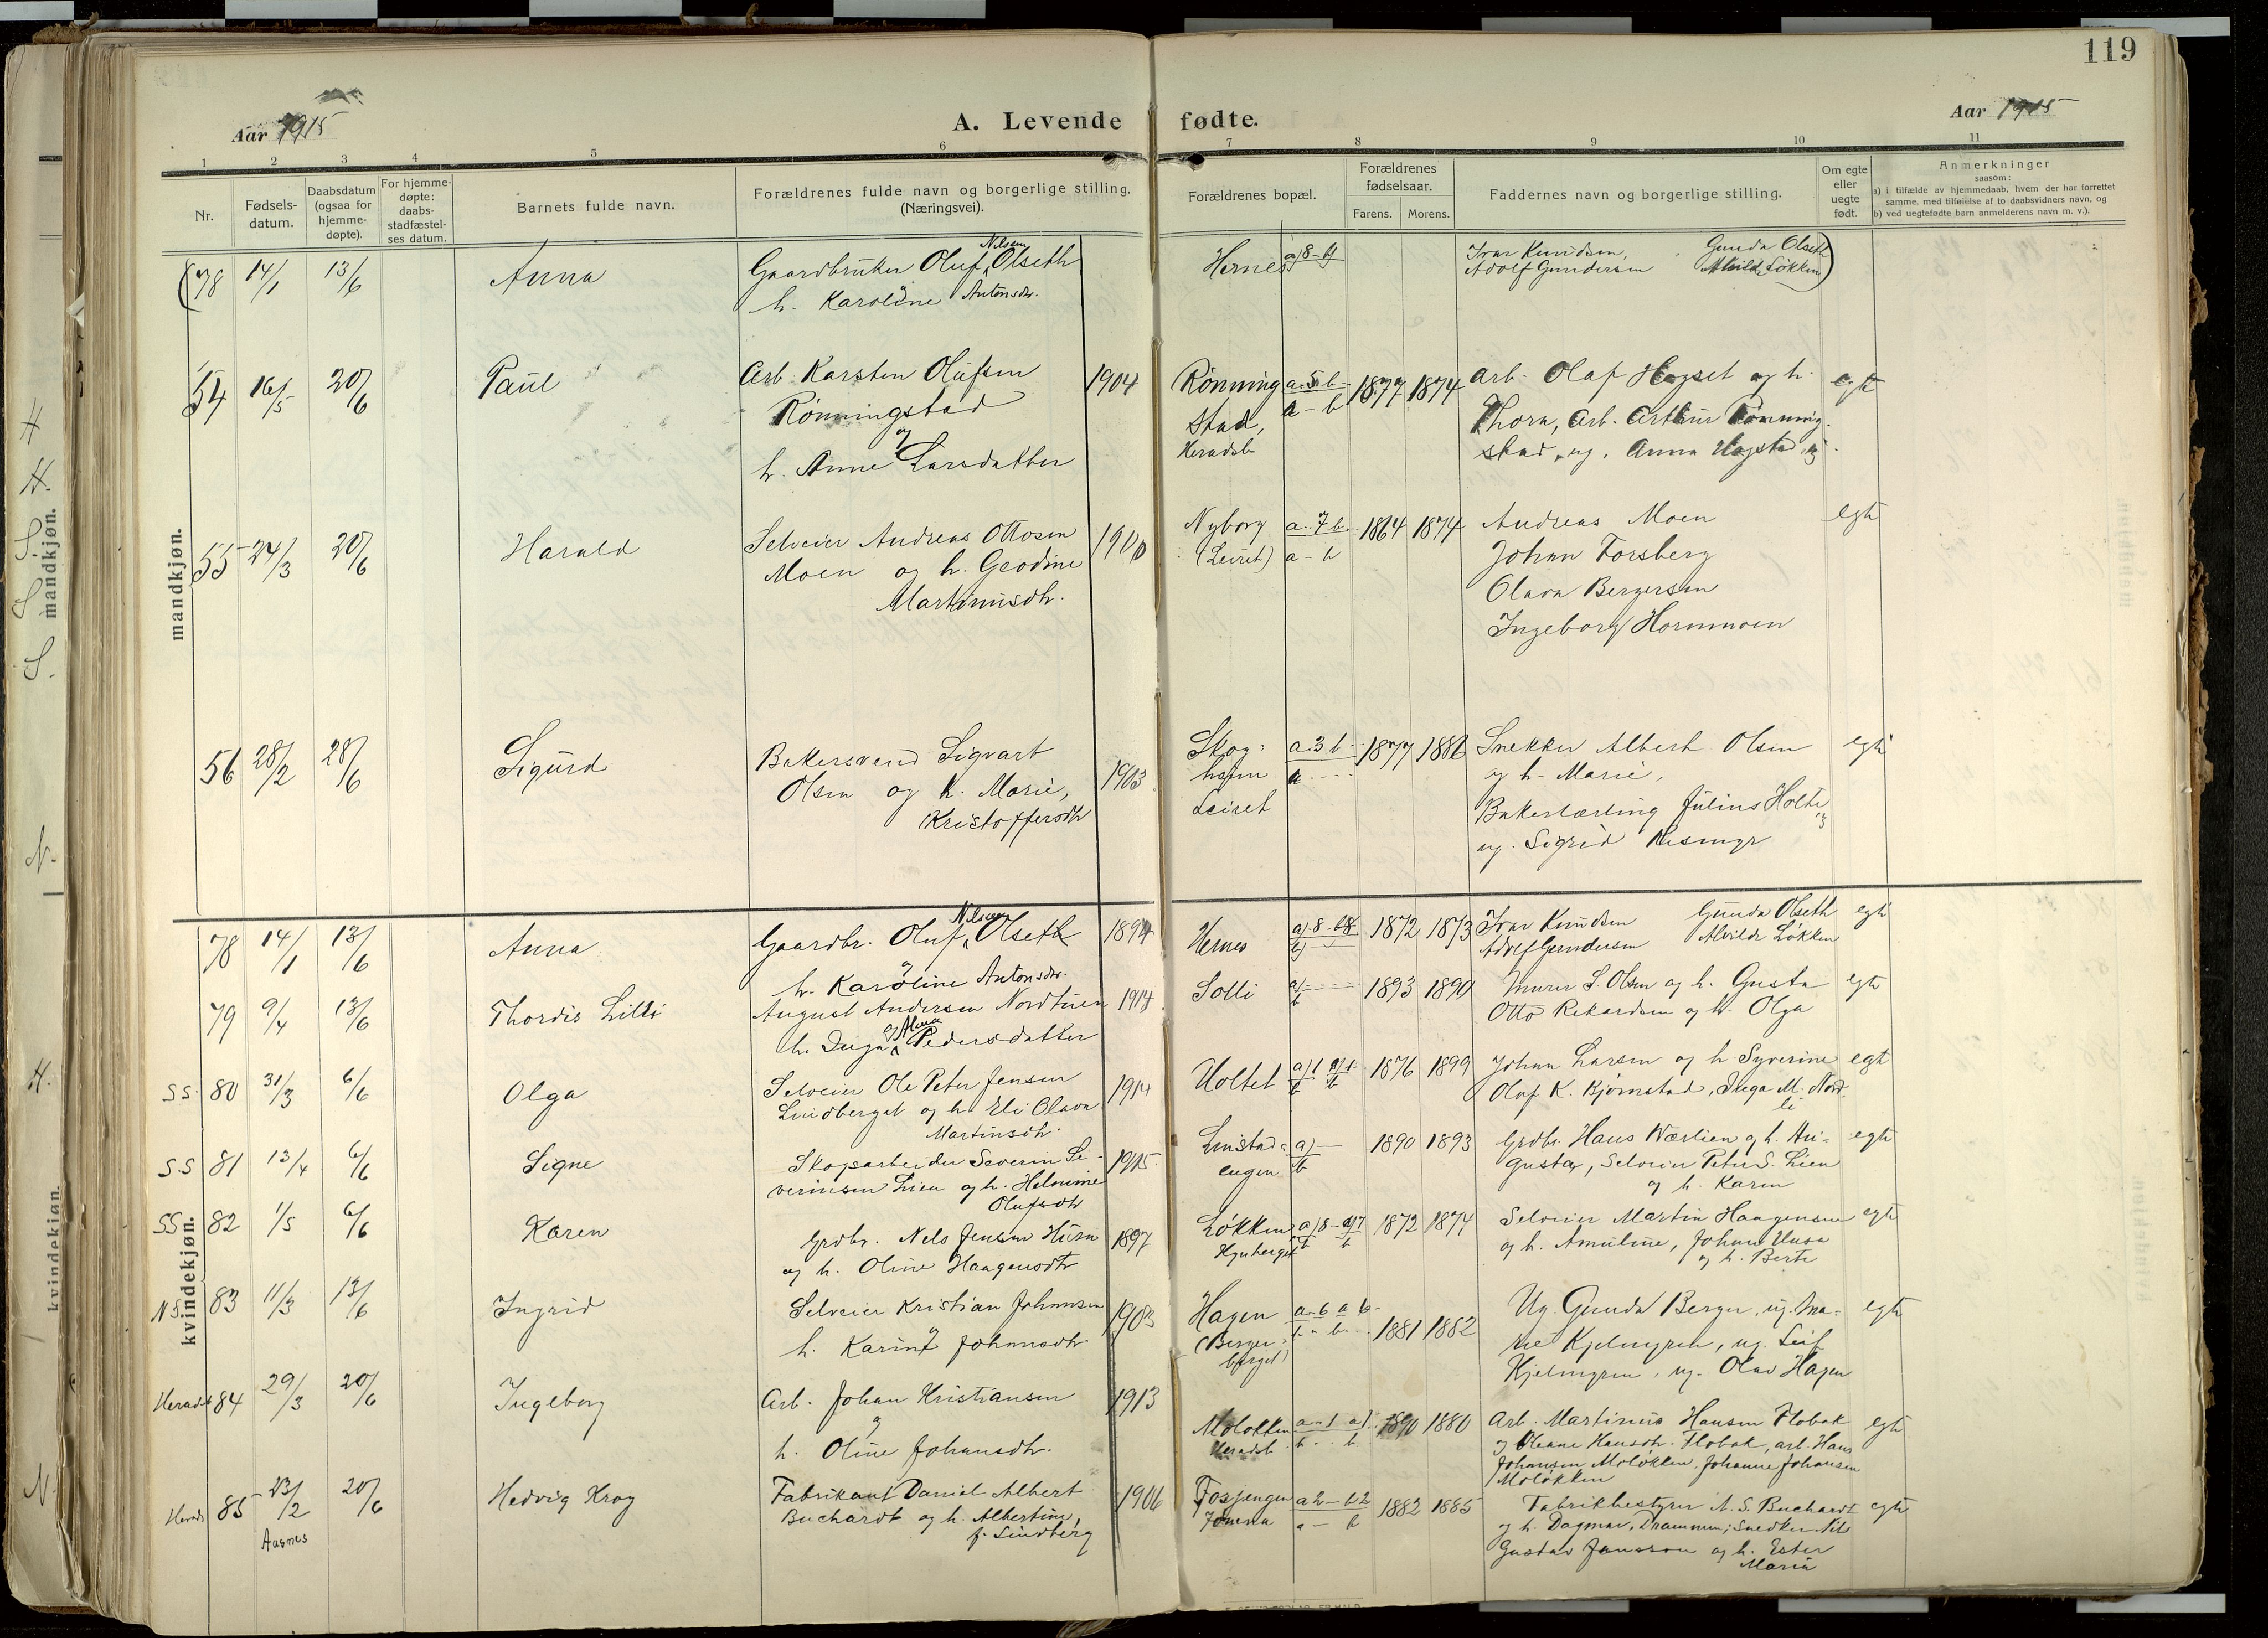 119
Aar 1915
A. Levende fødte.
Aar 1915
1 2 3 4 5 6 7 8 9 10 11
Nr.
Fødsels-
datum.
Daabsdatum
(ogsaa for
hjemme-
døpte).
For hjemme-
døpte:
daabs-
stadfæstel-
ses datum.
Barnets fulde navn.
Forældrenes fulde navn og borgerlige stilling.
(Næringsvei).
Forældrenes bopæl.
Forældrenes
fødselsaar.
Farens. Morens.
Faddernes navn og borgerlige stilling.
Om egte
eller
uegte
født.
Anmerkninger
saasom:
a) i tilfælde av hjemmedaab, hvem der har forrettet
samme, med tilføielse af to daabsvidners navn, og
b) ved uegtefødte barn anmelderens navn m. v.).
mandkjøn.
mandkjøn.
(78 14/1 13/6 Anna
Nilsen
Gaardbruker Oluf Olseth
og
h. Karoline Antonsdr.
Hernes a) 8 - b)
Ivar Knudsen, Gunda Olseth
Adolf Gundersen Alvilde Løkken)
54 16/5 20/6 Paul
Arb. Karsten Olufsen 1904
Rønningstad
og
h. Anne Larsdatter
Rønning
stad,
Heradsb
a. 5 b -
a - b
1877 1874
Arb. Olaf Hagset og h.
Thora, Arb. Arthur Rønning-
stad, ug. Anna Hagstad, ug.
egte
55 24/3 20/6 Harald
Selveier Andreas Ottosen 1900
Moen og h. Geodine
Martinusdtr.
Nyborg
(Leiret)
a. 7 b.
a - b
1864 1874
Andreas Moen
Johan Forsberg
Olava Bergersen
Ingeborg Hornmoen
egte
56 28/2 28/6 Sigurd
Bakersvend Sigvart
Olsen og h. Marie, 1903
Kristoffersdtr
Skog-
heim
Leiret
a 3 b -
1877 1886
Snekker Albert Olsen
og h. Marie,
Bakerlærling Julius Holte,
ug. Sigrid
egte
kvindekjøn.
kvindekjøn.
78 14/1 13/6 Anna
Nilsen
Gaardbr. Oluf Olseth 1894
og
h. Karoline Antonsdr.
Hernes a) 8 - b8
b)
1872 1873
Ivar Knudsen Gunda Olseth
Adolf Gundersen Alvilde Løkken
egte
79 9/4 13/6 Thordis Lilli
August Andersen Nordtuen 1914
og Alma
h. Inga Pedersdatter
Solli a)
b
1893 1890
Murer S. Olsen og h. Gusta
Otto Rikardsen og h. Olga
egte
S.S. 80 31/3 6/6 Olga
Selveier Ole Peter Jensen 1914
Lindberget og h. Eli Olava
Martinsdtr.
Holtet
1876 1899
Johan Larsen og h Syverine
Oluf K. Bjørnstad, Inga M. Nord-
li
egte
S.S 81 13/4 6/6 Signe
Skogsarbeider Severin Se- 1915
verinsen Lien og h. Helmine
Olufsdtr
Linstad-
engen
a) -
b
1890 1893
Grdbr. Hans Nærlien og h. Au-
gusta, Selveier Peter S. Lien
og h. Karen
egte
SS 82 1/5 6/6 Karen
Grdbr. Nels Jensen 1897
og h. Oline Haagensdtr
Løkken
1872 1874
Selveier Martin Haagensen
og h. Amuline, Johan
og h. Berte
egte
N.S. 83 11/3 13/6 Ingrid
Selveier Kristian Johansen 1903
og
h. Karine Johansdtr
Hagen
(Berger-
berget)
a - 6 a 6 -
1881 1882
Ug. Gunda Berger, ug. Ma-
rie Kjelmyren, ug. Leif
Kjelmyren, ug. Olav Hagen
egte
Heradsb 84 29/3 20/6 Ingeborg
Arb. Johan Kristiansen 1913
og
h. Oline Johansdtr.
Moløkken
Heradsb
1890 1880
Arb. Martinius Hansen Flobak
og Oleane Hansdtr. Flobak, arb. Hans
Johansen Moløkken, Johanne Johansen
Moløkken
egte
Heradsb 85 23/2 20/6 Hedvig Krog
Aasnes
Fabrikant Daniel Albert 1906
Buchardt og h. Albertine,
f. Lindberg
Fossengen
Jømna
a 2 - b 2
a - b
1882 1885
Fabrikbestyrer A. S. Buchardt
og h. Dagmar, Drammen; Snedker Nils
Gustav Jansson og h. Ester
Maria
egte